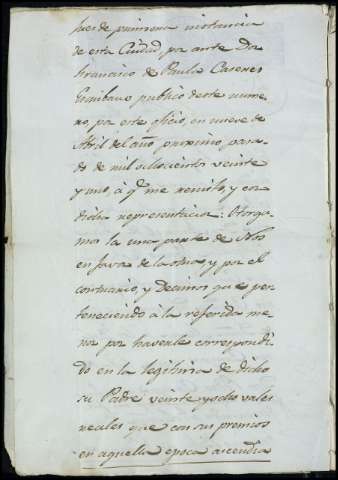 hes de primera instancia
de esta Ciudad, pr. ante Dn.
Francisco de Paula Caseres
Escribano publico de este nume-
ro, pr. este oficio, en nueve de
Abril del año proximo pasa-
do de mil ochocientos veinte
y uno, á qe. me remito, y con
dicha representacion: Otorga-
mos la una parte de Nos
en favor de la otra y por el
contrario, y decimos que per-
teneciendo á la referida me-
nor por haversele correspondi-
do en la legitima de dicho
su Padre veinte y ocho vales
reales que con sus premios
en aquella epoca ascendia